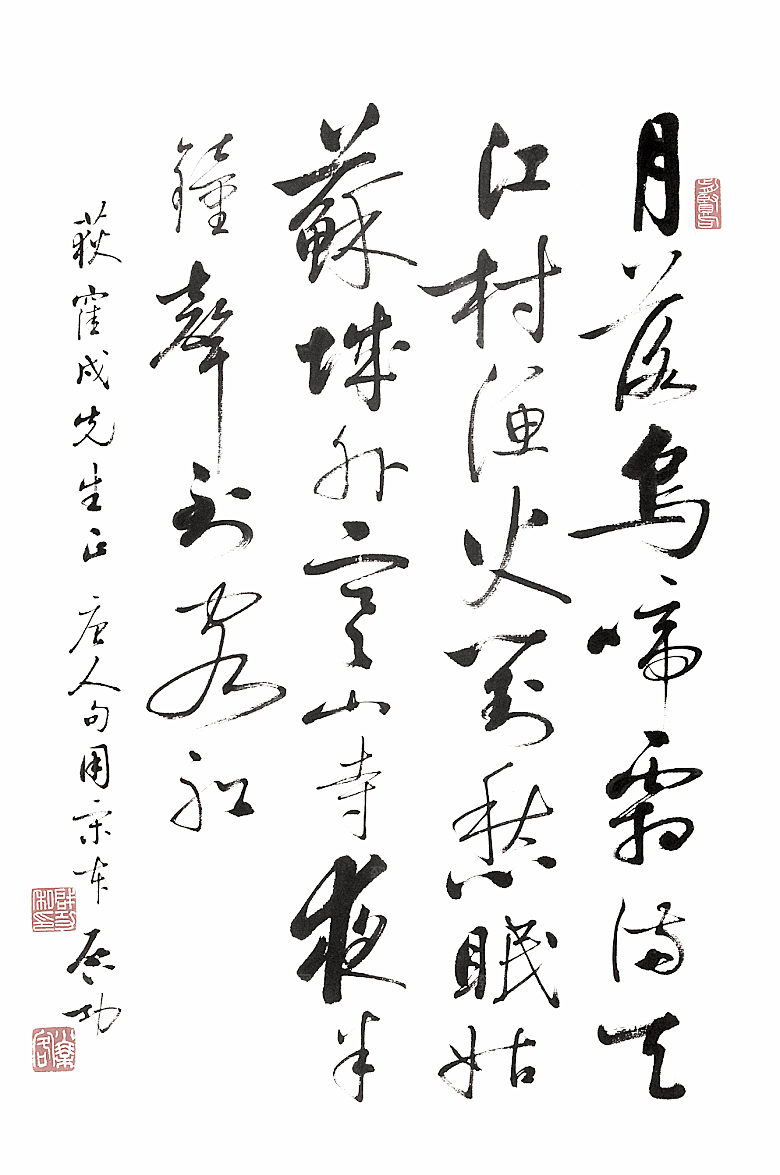 月落烏啼霜满天
江村漁火對愁眠姑
蘇城外寒山寺夜半
鐘聲到客船
荻窪成先生正 唐人句用宋本 启功